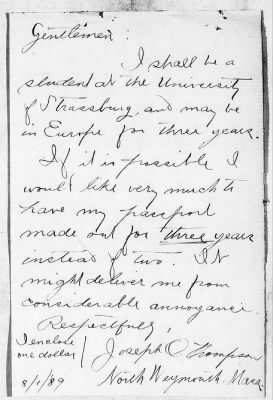 Gentlemen:
I shall be a
student at the University
of Strassburg, and may be
in Europe for three years.
If it is possible I
would like very much to
have my passport
made out for three years
instead of two. It
might deliver me from
considerable annoyance.
Respectfully,
I enclose
one dollar
Joseph O Thompson
8/1/89
North Weymouth. Mass